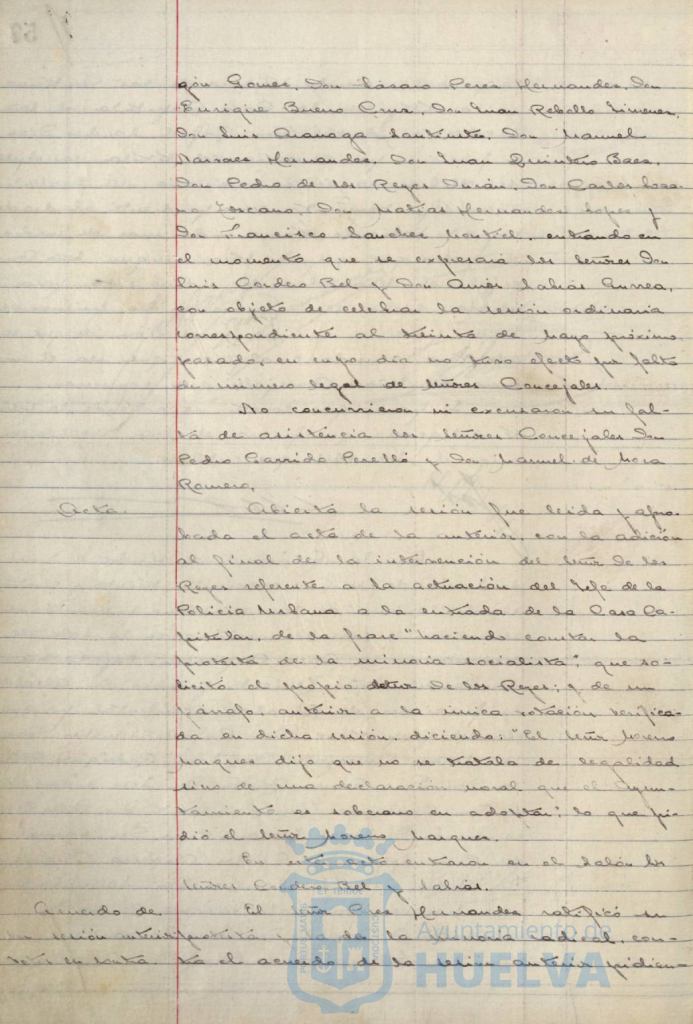 gón Gomez, Don Lázaro Perez Hernandez, Don
Enrique Bueno Cruz, Don Juan Rebollo Jimenez,
Don Luis Don Manuel
Narvaez Hernandez, Don Juan Quintero Baez,
Don Pedro de los Reyes Durán, Don Carlos
Toscano, Don Matías Hernandez Lopez y
Don Francisco Sanchez Montiel, entrando en
el momento que se expresará los Señores Don
Luis Cordero Bel y Don Amós Sabrás Gurrea,
con objeto de celebrar la sesión ordinaria
correspondiente al treinta de Mayo próximo
pasado, en cuyo día no tuvo efecto por falta
de número legal de Señores Concejales.
No concurrieron ni excusaron su fal-
ta de asistencia los Señores Concejales Don
Pedro Garrido Perelló y Don Manuel de Mora
Romero.
Acta. Abierta la sesión fue leida y apro-
bada el acta de la anterior, con la adición
al final de la intervención del Señor de los
Reyes referente a la actuación del Jefe de la
Policía Urbana a la entrada de la Casa Ca-
pitular, de la frase "haciendo constar la
protesta de la minoria socialista", que so-
licitó el propio Señor de los Reyes; y de un
párrafo, anterior a la única votación verifica-
da en dicha sesión, diciendo: "El Señor Moreno
Marquez dijo que no se trataba de legalidad
sino de una declaración moral que el Ayun-
tamiento es soberano en adoptar"; lo que pi-
dió el Señor Moreno Marquez.
En este acto entraron en el Salón los
Señores Cordero Bel y Sabrás.
Acuerdo de El Señor Perez Hernandez ratificó su
la sesión anterior protesta, y la de la minoria radical, con-
tra el acuerdo de la sesión anterior pidien-
Ayuntamiento de
HUELVA